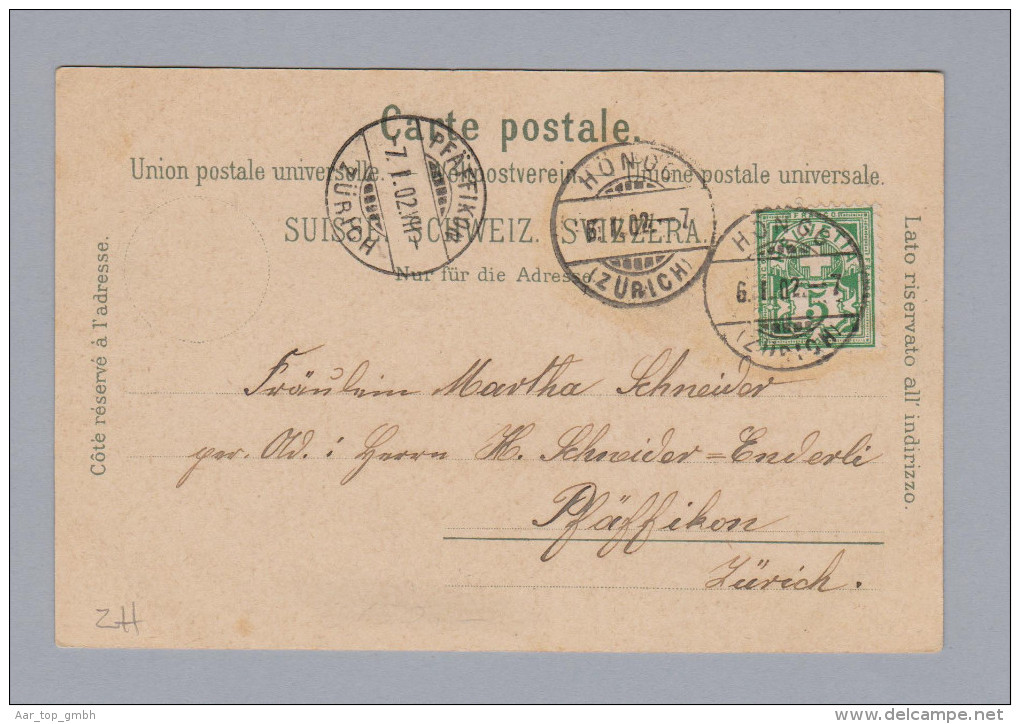 Carte postale.
Union postale universelle. Weltpostverein. Unione postale universale.
SUISSE. SCHWEIZ. SVIZZERA.
Nur für die Adresse.
Côté réservé à l'adresse.
Lato riservato all' indirizzo.
PFÄFFIKON
7. I. 02.
ZÜRICH
HÖNGG
6. I. 02. — 7
(ZÜRICH)
HÖNGG
6. I. 02. — 7
(ZÜRICH)
HELVETIA
5
Fräulein Martha Schneider
per. Ad: Herrn H. Schneider=Enderli
Pfäffikon
Zürich.
ZH
Aar_top_gmbh
www.delcampe.net